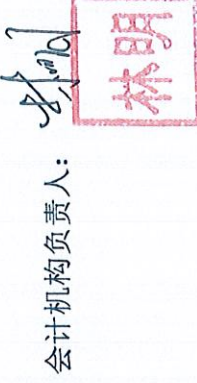 会计机构负责人：
林明